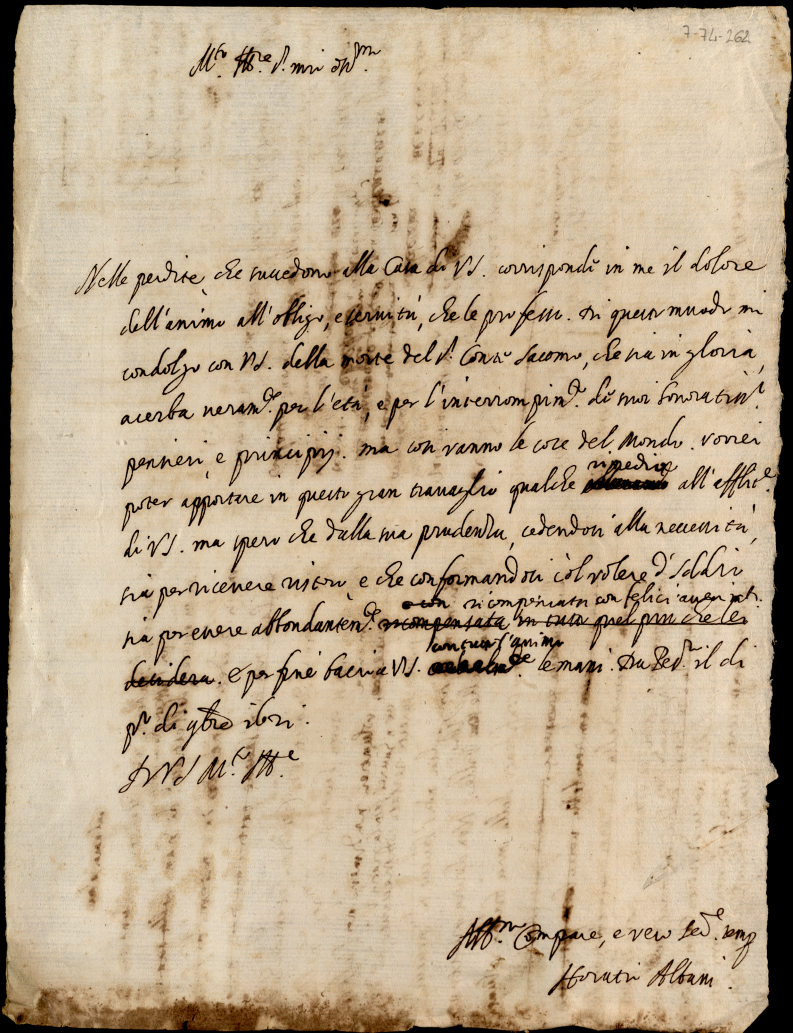 7-74-262
M.to Ill.re S.r mio oss.mo
Nelle perdite, che succedono alla Casa di VS. corrisponde in me il dolore
dell'animo all'obligo, e servitù, che le professo. Di questo modo mi
condolgo con VS. della morte del S.r Conte Giacomo, che sia in gloria,
acerba veram.te per l'età, e per l'interrompim.to de suoi honoratiss.i
pensieri, e principij. ma così vanno le cose del Mondo. vorrei
poter apportare in questo gran travaglio qualche rimedio all'afflit.e
di VS. ma spero che dalla sua prudenza, cedendosi alla necessità,
sia per ricevere ristoro e che conformandosi col volere d'Iddio
sia per essere abbondantem.te ricompensata in tutto quel più che lei
con ricompensata con felici
desidera. E per fine bacio a VS. con tutto l'animo le mani. Da
p.o di
Di VS M.to Ill.e
Aff.mo Compare, e vero Ser.e semp
Horatio Albani